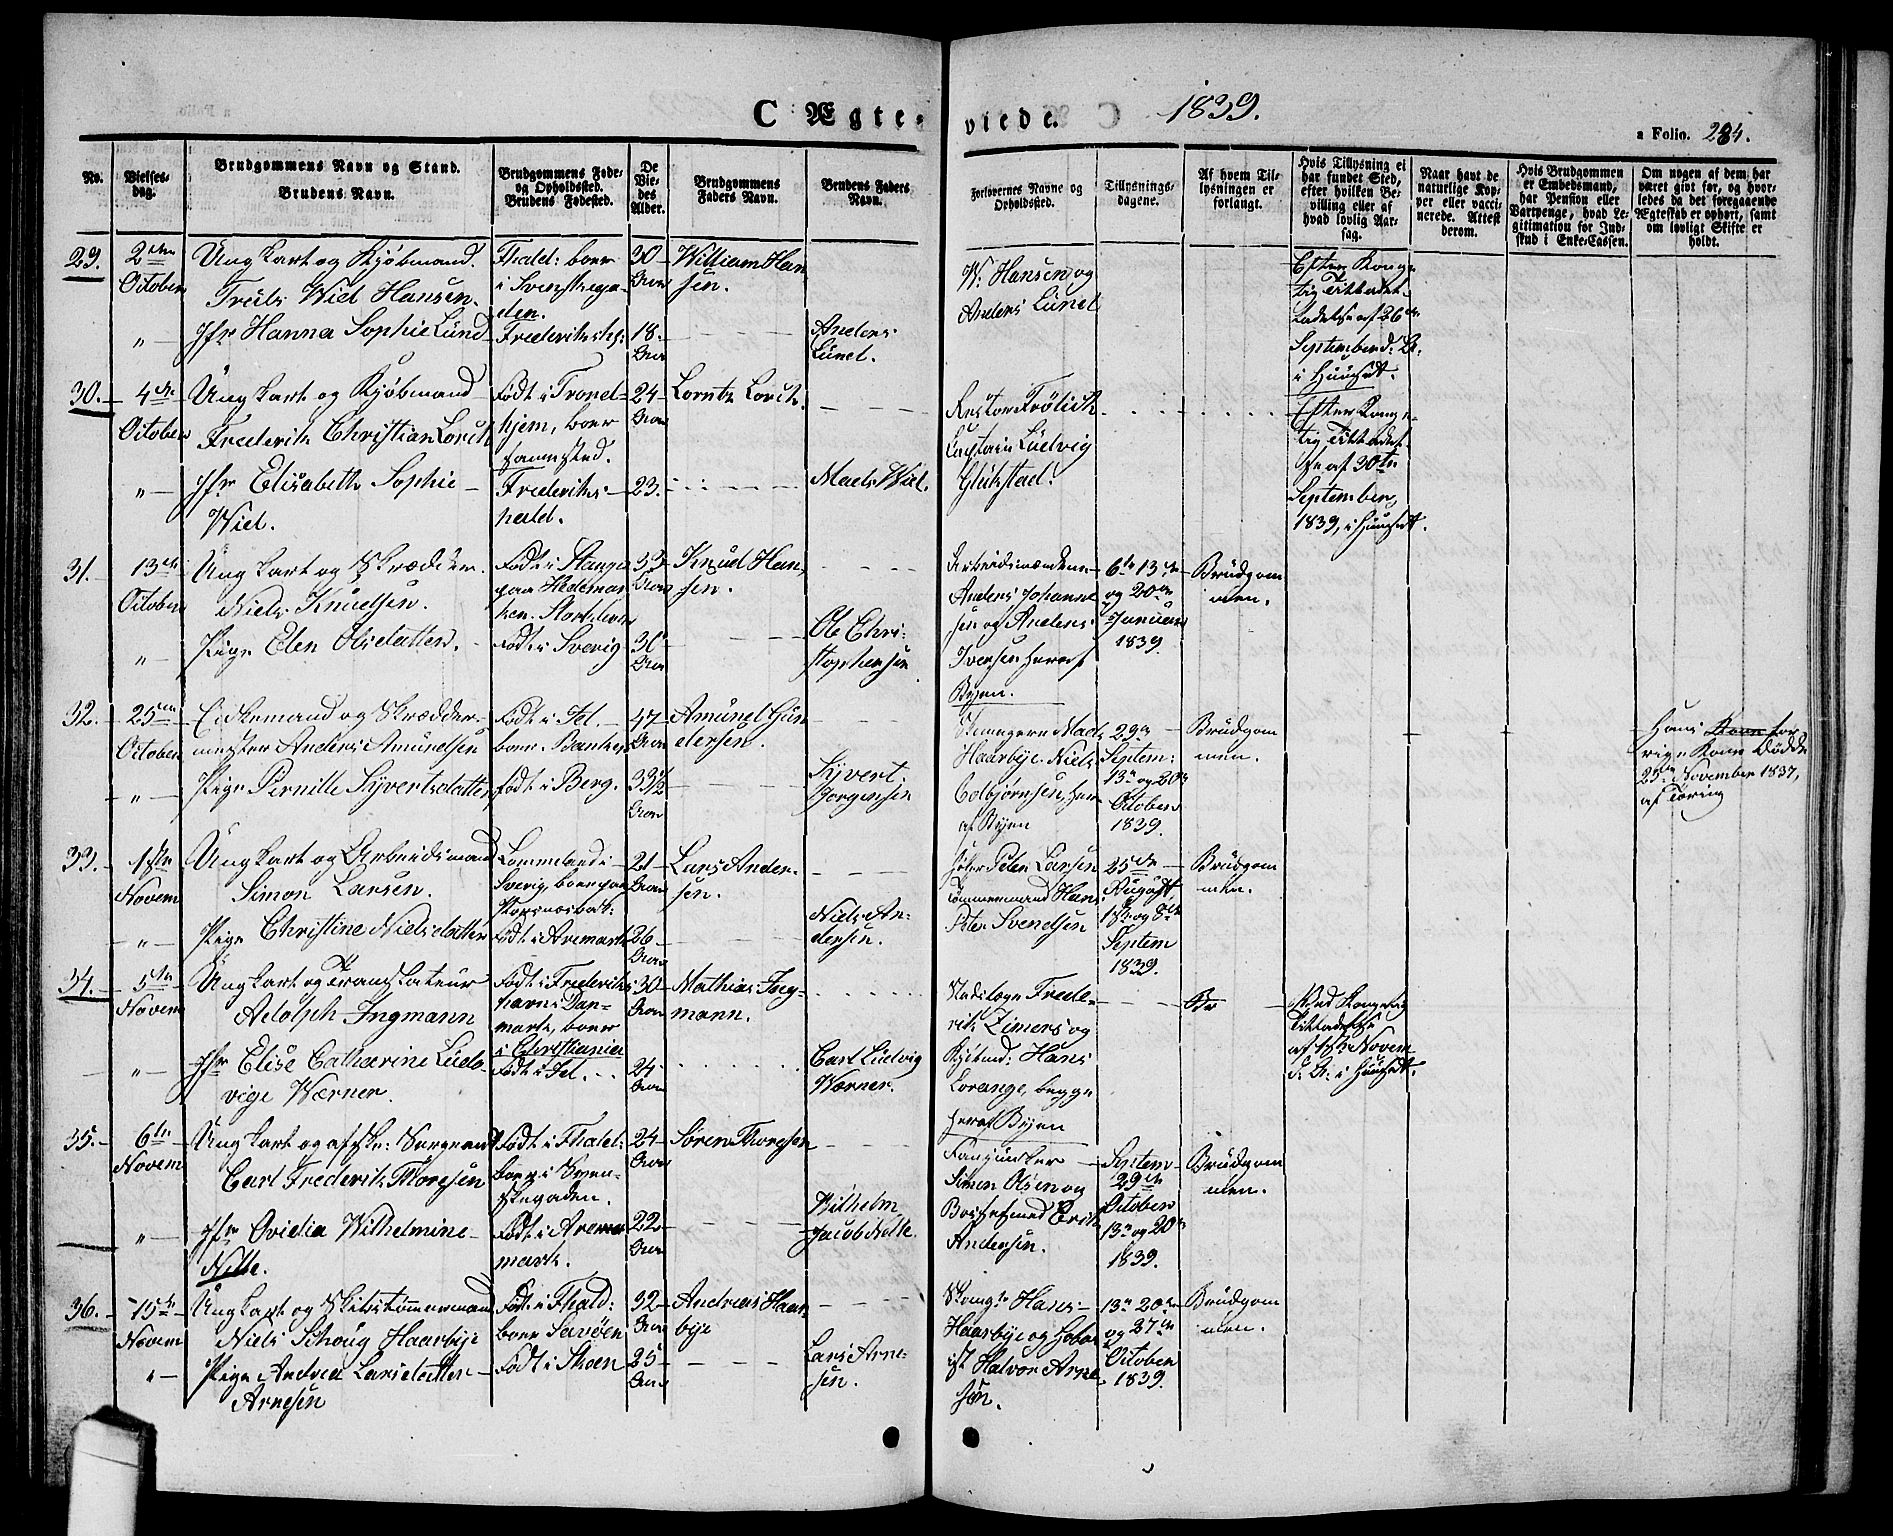 C Ægte-viede. 1839.
a Folio. 284.
No.
Vielses-
dag.
Brudgommens Navn og Stand.
Brudens Navn.
Brudgommens Føde-
og Opholdssted.
Brudens Fødested.
De
Vie-
des
Alder.
Brudgommens
Faders Navn.
Brudens Faders
Navn.
Forlovernes Navne og
Opholdssted.
Tillysnings-
dagene.
Af hvem Til-
lysningen er
forlangt.
Hvis Tillysning ei
har fundet Sted,
efter hvilken Be-
villing eller af
hvad lovlig Aar-
sag.
Naar havt de
naturlige Kop-
per eller vacci-
nerede. Attest
derom.
Hvis Brudgommen
er Embedsmand,
har Pension eller
Vartpenge, hvad Le-
gitimation for Ind-
skud i Enke-Cassen.
Om nogen af dem har
været givt før, og hvor-
ledes da det foregaaende
Ægteskab er ophørt, samt
om lovligt Skifte er
holdt.
29.
2den
October
Ungkarl og Kjøbmand
Truls Wiel Hansen.
Fhald: boer
i Svenskega-
den.
30
Aar
William Han
sen.
W. Hansen og
Anders Lund
Efter Konge
lig Tilladelse af 26de
September d: A.
i Huuset.
" Jfr Hanna Sophie Lund
Frederikshs:
18
Aar
Anders
Lund.
30.
4de
October
Ungkarl og Kjøbmand
Frederik Christian Lorck
Født i Trond-
hjem, boer
sammested.
24
Aar
Lorntz Lorck.
Frölich
Captain Ludvig
Glükstad.
Efter Konge-
lig Tilladel-
se af 30te
September
1839, i Huuset.
" Jfr Elisabeth Sophie
Wiel.
Frederiks-
hald.
23.
Mads Wiel.
31.
13de
October
Ungkarl og Skrædder
Niels Knudsen.
Født i Stange
paa Hedemar-
ken.
33
Aar
Knud Han
sen.
Arbeidsmændene
Anders Johanne
sen og Anders
Iversen her af
Byen.
6te 13de
og 20de
Januar
1839.
Brudgom
men.
" Pige Elen Olsdatter.
Født i Sverig
30
Aar
Ole Chri-
stophersen
32.
25de
October
Enkemand og Skrædder-
mester Anders Amundsen
Født i Id.
boer Banken
47
Aar
Amund Gun
dersen.
Mads
Haarbye, Niels
Colbjørnsen, her
af Byen
29de
Septem:
13de og 20de
October
1839.
Brudgom
men.
Hans for
rige Kone døde
25de November 1837,
af Tæring
" Pige Pernille Syvertsdatter
Født i Berg.
33½
Aar
Syvert
Jørgensen
33.
1ste
Novem
Ungkarl og Arbeidsmand
Simon Larsen.
Lommeland i
Sverig, boer paa
21
Aar
Lars Ander-
sen.
Peter Larsen
Tømmermand Hans
Peter Svendsen
25de
August,
1ste og 8de
Septem
1839.
Brudgom
men.
" Pige Christine Nielsdatter
Født i Aremark
26
Aar
Niels An-
dersen.
34.
5te
Novem
Ungkarl og Translateur
Adolph Ingmann
Født i Frederiks
havn i Dan-
mark, boer
i Christiania
30
Aar
Mathias Ing
mann.
Stadslæge Frede-
rik Zimers og
Kjøbmd: Hans
Lorange, begge
her af Byen
Br
Med Kongelig
Tilladelse
af 1ste Novem
d. A. i Huuset.
" Jfr Elise Catharine Lud-
vige Wærner.
Født i Id.
24
Aar
Carl Ludvig
Wærner.
35.
6te
Novem
Ungkarl og afske: Sergeant
Carl Frederik Thoresen
Født i Fhald:
boer i Sven-
skegaden.
24
Aar
Søren Thoresen
Fanjunker
Simen Olsen og
Erik
Andersen.
Septem
29de
October
13de og 20de
1839.
Brudgom
men.
" Jfr Ovidia Wilhelmine
Nolte.
Født i Are
mark.
22
Aar
Wilhelm
Jacob Nolte.
36.
15de
Novem
Ungkarl og Skibstømmermand
Niels Schoug Haarbye
Født i Fhald:
boer Sarøen
32
Aar
Andreas Haar
bye
Hans
Haarbye og
Halvor Arne
sen.
13de 20de
og 27de
October
1839.
Brudgom
men.
" Pige Andrea Larsdatter
Arnesen
Født i Skoen
25
Aar
Lars Arne-
sen.